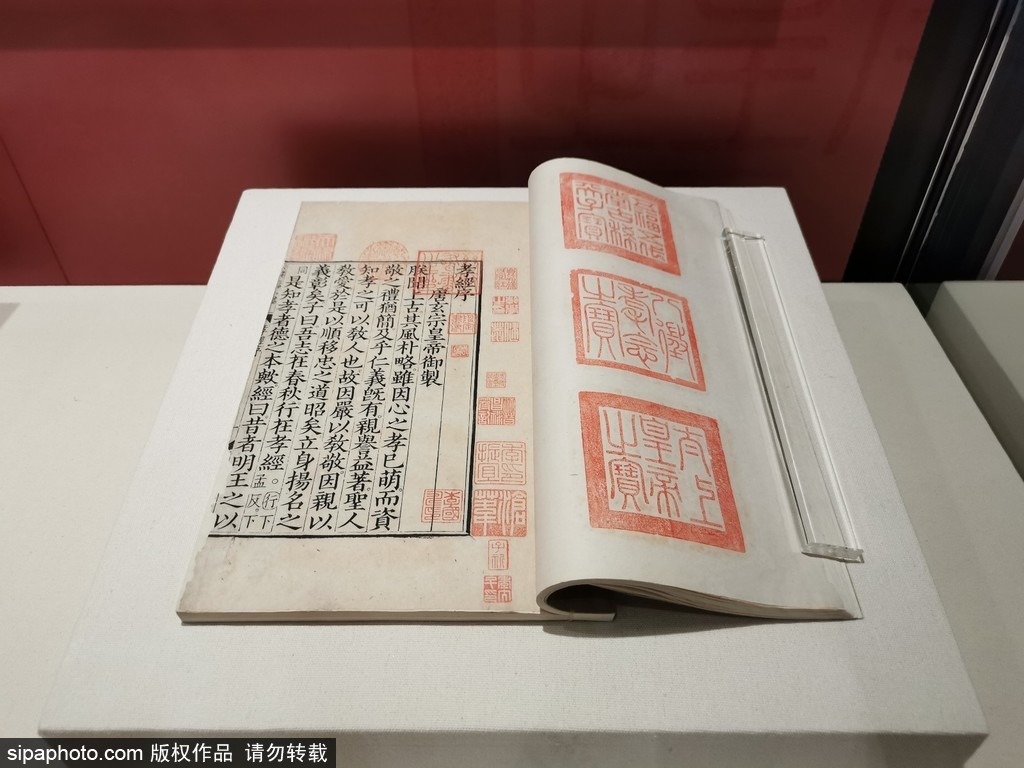 孝經序
唐玄宗皇帝御製
朕聞上古其風朴略雖因心之孝已萌而資
敬之禮猶簡及乎仁義旣有親譽益著聖人
知孝之可以敎人也故因嚴以敎敬因親以
敎愛於是以順移忠之道昭矣立身揚名之
義彰矣子曰吾志在春秋行在孝經。行下孟反下
同是知孝者德之本歟經曰昔者明王之以
八徵耄念之寶
太上皇帝之寶
sipaphoto.com 版权作品 请勿转载